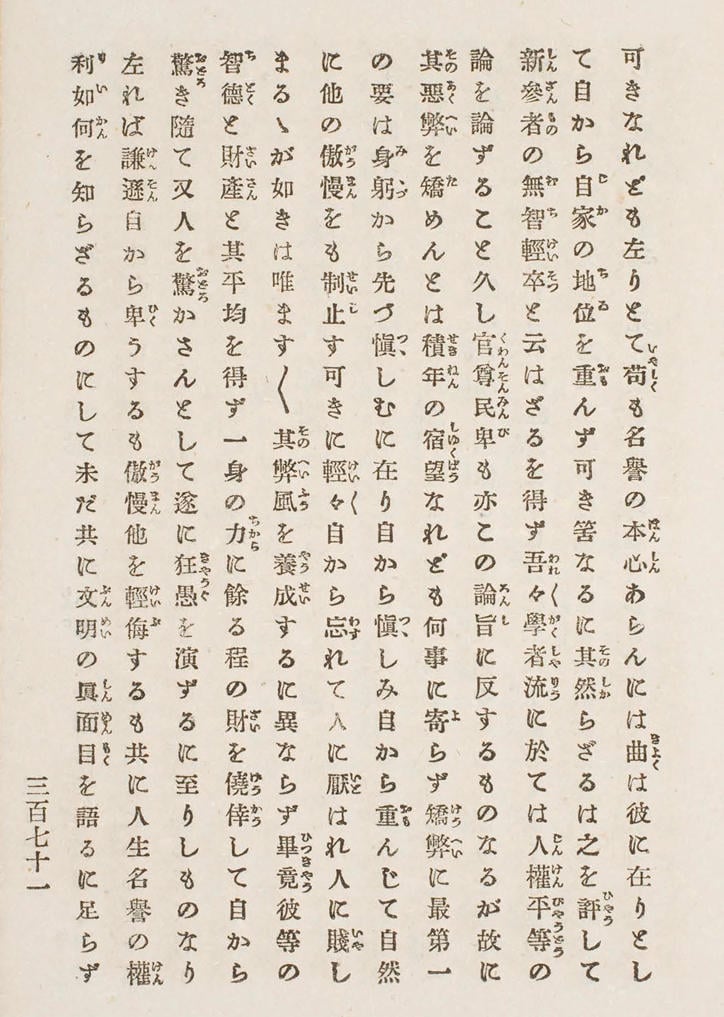 可きなれども左りとて苟も名譽の本心あらんには曲は彼に在りとし
て自から自家の地位を重んず可き筈なるに其然らざるは之を評して
新參者の無智輕卒と云はざるを得ず吾々學者流に於ては人權平等の
論を論ずること久し官尊民卑も亦この論旨に反するものなるが故に
其惡弊を矯めんとは積年の宿望なれども何事に寄らず矯弊に最第一
の要は身躬から先づ愼しむに在り自から愼しみ自から重んじて自然
に他の傲慢をも制止す可きに輕々自から忘れて人に厭はれ人に賤し
まるゝが如きは唯ます〱其弊風を養成するに異ならず畢竟彼等の
智德と財產と其平均を得ず一身の力に餘る程の財を僥倖して自から
驚き隨て又人を驚かさんとして遂に狂愚を演ずるに至りしものなり
左れば謙遜自から卑うするも傲慢他を輕侮するも共に人生名譽の權
利如何を知らざるものにして未だ共に文明の眞面目を語るに足らず
三百七十一